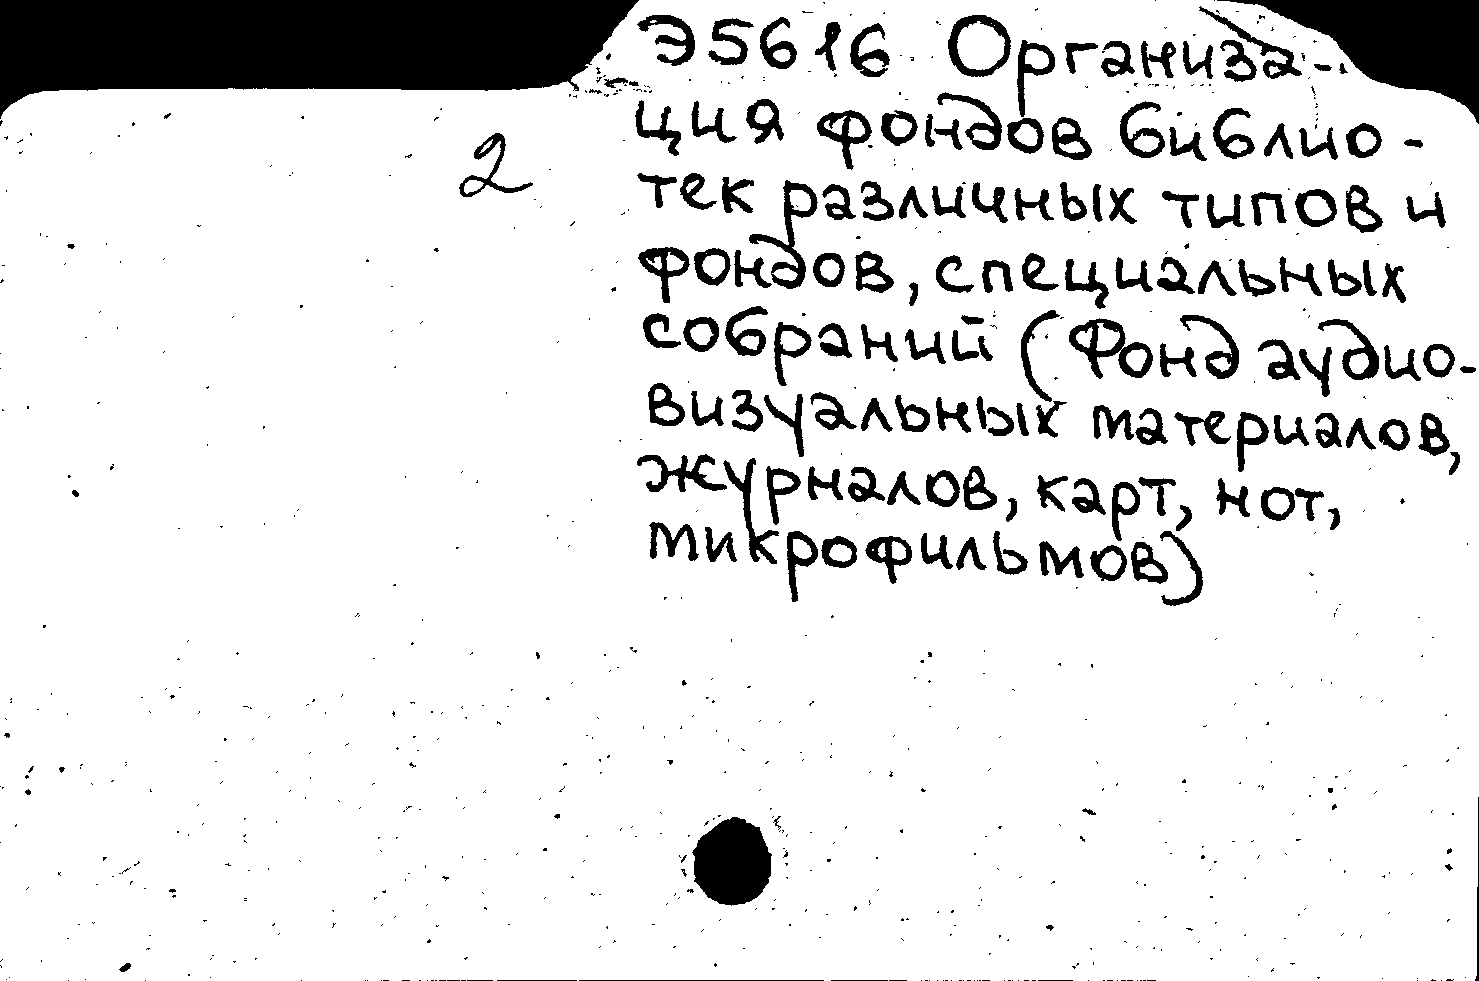 Э5616 Организа-
ция фондов библио-
2
тек различных типов и
фондов, специальных
собраний (Фонд аудио-
визуальных материалов,
журналов, карт, нот,
микрофильмов)